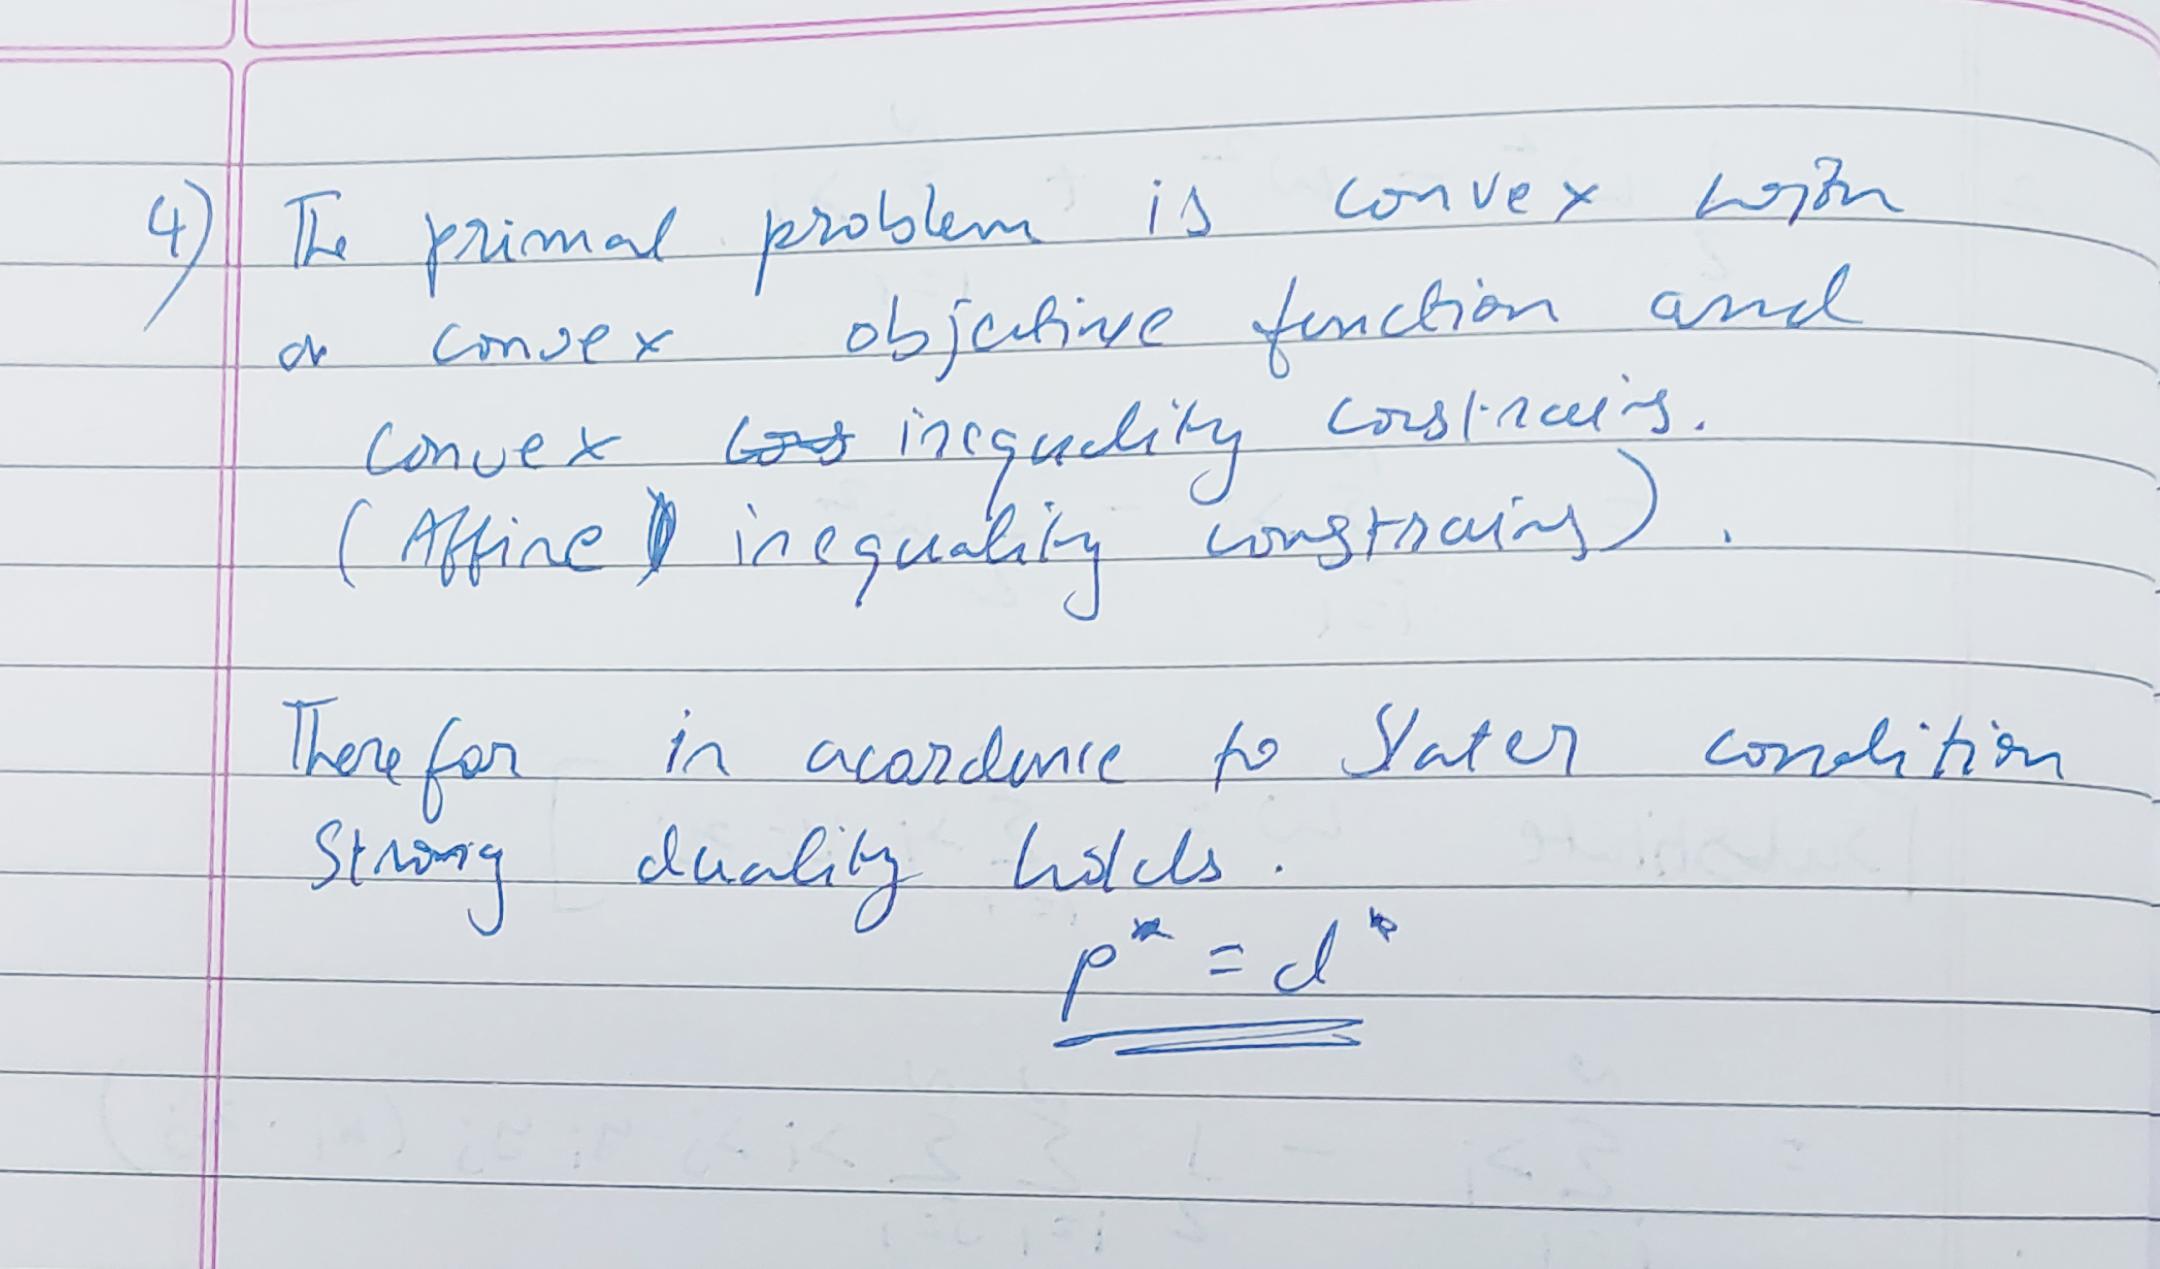 4) The primal problem is convex with
a convex objective function and
convex inequality constrains.
(Affine inequality constrains).
Therefor in acordence to Slater condition
Strong duality holds.
p* = d*